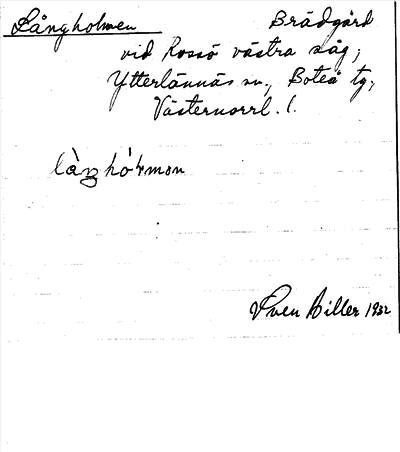 Långholmen Brädgård
vid Rossö västra såg;
Ytterlännäs sn., Boteå tg,
Västernorrl. l.
Sven Hiller 1932